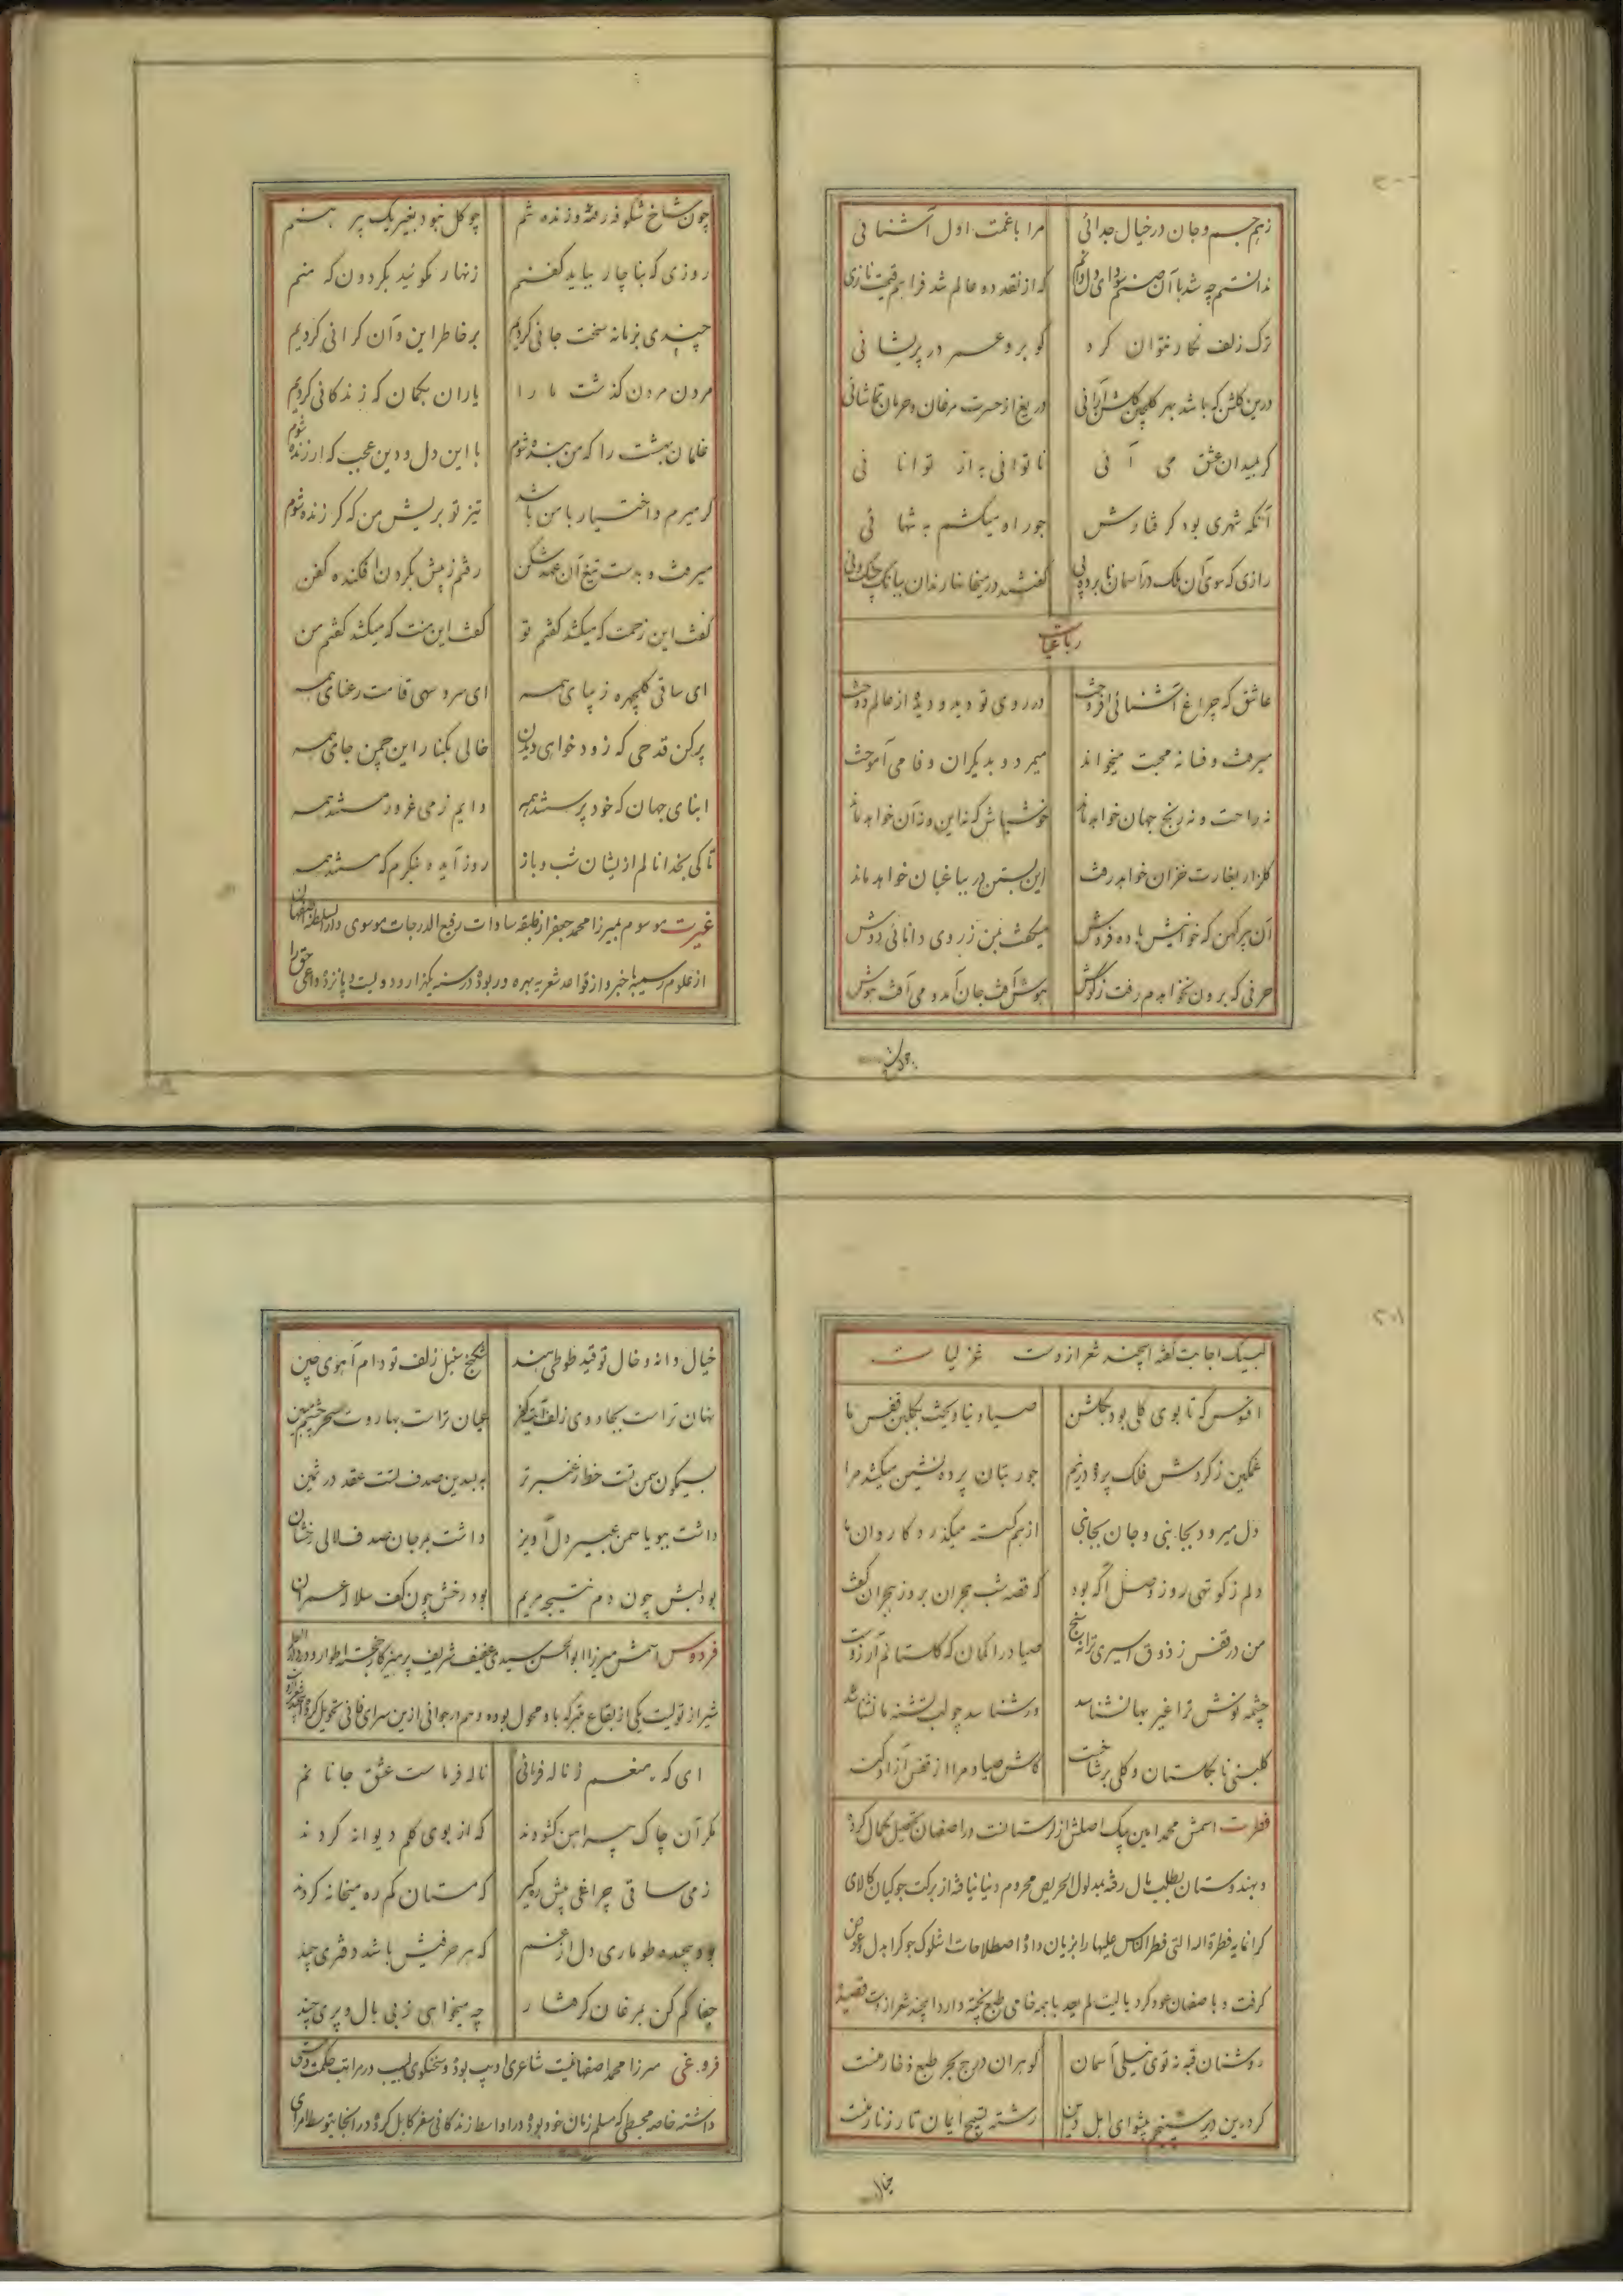 زهم جسم و جان در خیال جدائی مرا با غمت اول آشنائی
ندانستم چه شد با آن صنم سودای دل دانم که از نقد دو عالم شد فراهم قیمت نازی
ترک زلف نگار نتوان کرد گو برو عمر در پریشانی
درین گلشن که باشد بهر گلچین گلشن آرائی دریغ از حسرت مرغان و حرمان تماشائی
گر بمیدان عشق می آئی ناتوانی به از توانائی
آنکه شهری بود گرفتارش جور او میکشم به تنهائی
رازی که سوی آن ملک در آسمان نابرده پی گفتند در میخانها رندان ببانگ چنگ و نی
رباعیات
عاشق که چراغ آشنائی افروخت در روی تو دید و دیده از عالم دوخت
میرفت و فسانه محبت میخواند میمرد و بدیگران وفا می آموخت
نه راحت و نه رنج جهان خواهد ماند خوشباش که نه این و نه آن خواهد ماند
گلزار بغارت خزان خواهد رفت این بستن در بباغبان خواهد ماند
آن پیر کهن که خوانیش باده فروش میگفت بمن ز روی دانائی دوش
حرفی که برون نخواهدم رفت ز گوش هوش آفت جان آمد و می آفت هوش
چون شاخ شکوفه رفته و زنده شم چو گل نبود بغیر یک پیرهنم
روزی که بناچار بباید کفنم زنهار نگوئید بگردون که منم
چندی بزمانه سخت جانی کردیم بر خاطر این و آن گرانی کردیم
مردن مردن گذشت ما را یاران بگمان که زندگانی کردیم
غلمان بهشت را که من بنده شوم با این دل و دین عجب که ارزنده شوم
گر میرم و اختیار با من باشد تیز تو بریش من که گر زنده شوم
میرفت و بدست تیغ آن عهد شکن رفتم ز پیش بگردن افکنده کفن
گفت این زحمت که میکشد گفتم تو گفت این منت که میکشد گفتم من
ای ساقی گلچهره زیبای همه ای سرو سهی قامت رعنای همه
پر کن قدحی که زود خواهی دیدن خالی بکنار این چمن جای همه
ابنای جهان که خود پرستند همه دایم ز می غرور مستند همه
تا کی بخدا نالم ازیشان شب و باز روز آید و بنگرم که هستند همه
غیرت موسوم بمیرزا محمد جعفر از طبقه سادات رفیع الدرجات موسوی دار السلطنه اصفهان
از علوم رسمیه باخبر و از قواعد شعریه بهره ور بوده در سنه یکهزار و دویست و پانزده داعی حق را
لبیک اجابت گفته این چند شعر ازوست غزلیات
افسوس که تا بوی گلی بود بگلشن صیاد نیاویخت بگلبن قفس ما
غمگین ز گردش فلک پرده دریم جور بتان پرده نشین میکشد مرا
دل میرود بجانبی و جان بجانبی از هم گسسته میگذرد کاروان ما
دلم ز کوتهی روز وصل آگه بود که قصه شب هجران بروز هجران گفت
من در قفس ز ذوق اسیری ترانه سنج صیاد را گمان که گلستانم آرزوست
چشمه نوش ترا غیر بها نشناسد ور شناسد چو لب تشنه ما نشناسد
گلبنی تا بگلستان و گلی بر شاخست کاش صیاد مرا از قفس آزاد کند
فطرت اسمش محمد امین بیک اصلش از لرستانست در اصفهان تحصیل کمال کرده
و بهندوستان بطلب مال رفته بمدلول الحریص محروم دنیا نیافته از برکت جوکیان کالای
گرانمایه فطرة الله التی فطر الناس علیها را بزیان داده اصطلاحات اشلوک جوکرا بدل عوض
گرفت و باصفهان عود کرد یا لیت لم یعد با همه خامی طبع پخته دارد اینچند شعر ازوست قصیده
روشنان قبه نه توی نیلی آسمان گوهران درج بحر طبع ذخار منست
کرده بن دیر سنجم پیشوای اهل دین رشته تسبیح ایمان تار زنار منست
خیال
خیال دانه و خال تو قید طوطی هند شکنج سنبل زلف تو دام آهوی چین
نهان تراست بجادوی زلف عیان تراست بهاروت سحر چشم مبین
بسیمگون سمن تست خط ز عنبر تر به بسدین صدف تست عقد در ثمین
داشت بیویا سمن عبیر دل آویز داشت بمرجان صدف لالی رخشان
بود لبش چون دم نتیجه مریم بود رخش چون کف سلاله عمران
فردوس اسمش میرزا ابوالحسن سیدی عفیف شریف پرهیزکار خجسته اطوار و در دار العلم
شیراز تولیت یکی از بقاع متبرکه با و محول بوده و هم در جوانی ازین سرای فانی تحویل کرد
ای که منعم ز ناله فرمائی ناله فرماست عشق جانانم
مگر آن چاک پیراهن گشودند که از بوی گلم دیوانه کردند
ز می ساقی چراغی پیش ره گیر که مستان گم ره میخانه کردند
بود پیچیده طوماری دل از غم که هر حرفیش باشد دفتری چند
جفا کم کن بمرغان گرفتار چه میخواهی ز بی بال و پری چند
فروغی میرزا محمد اصفهانیست شاعری ادیب بوده و سخنگوی لبیب در مراتب حکمت
داشته خاصه مجسطی که مسلم زمان خود بوده در اواسط زندگانی سفر کابل کرده در آنجا بتوسط امرای